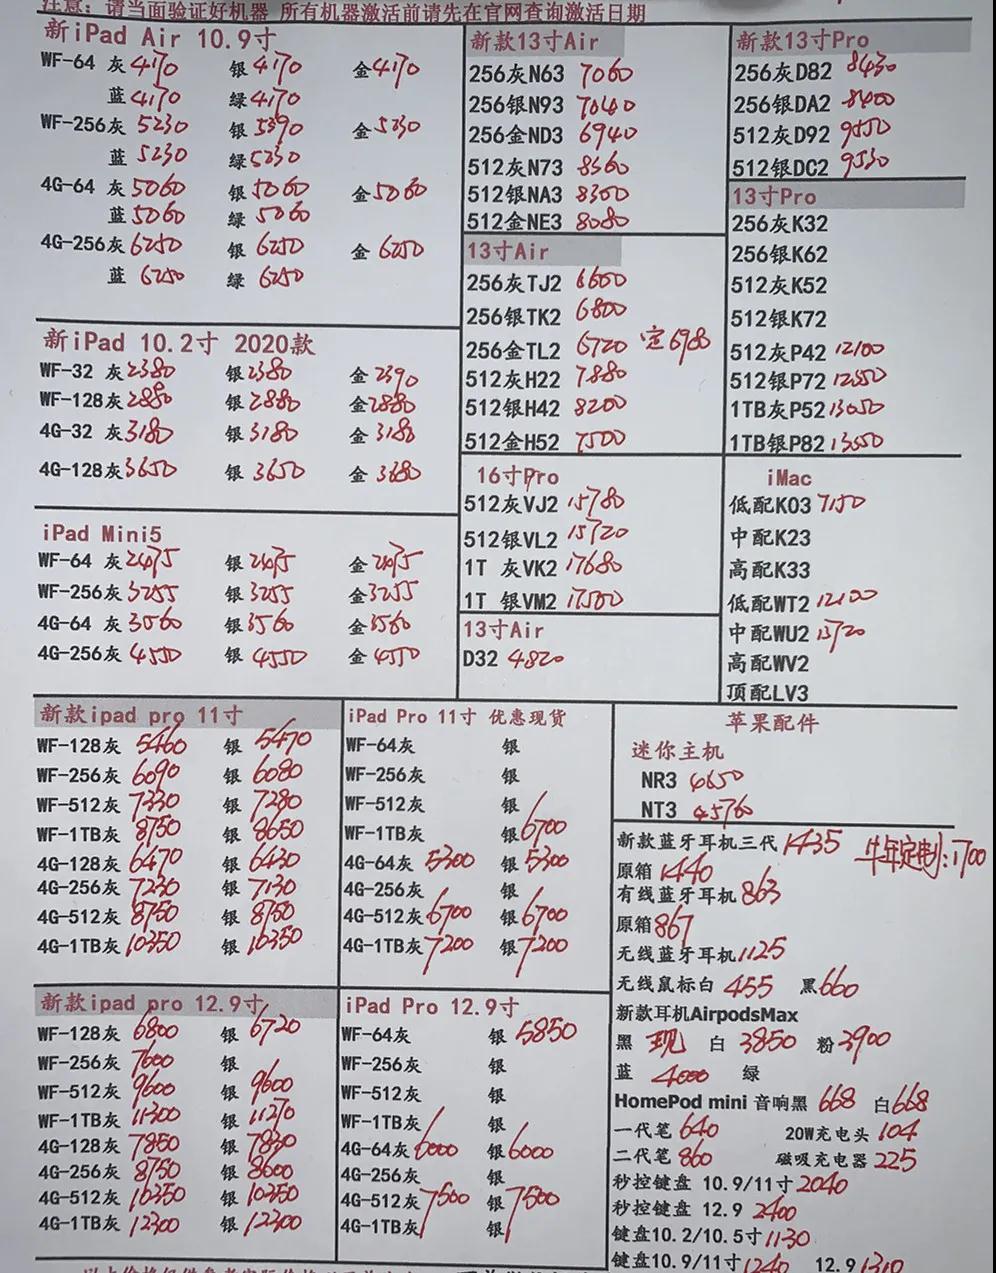 注意：请当面验证好机器 所有机器激活前请先在官网查询激活日期
新iPad Air 10.9寸
WF-64 灰4170 银4170 金4170
蓝4170 绿4170
WF-256灰 5230 银5390 金5230
蓝 5230 绿5230
4G-64 灰5060 银5060 金5060
蓝5060 绿 5060
4G-256灰6250 银 6250 金 6250
蓝 6250 绿 6250
新iPad 10.2寸 2020款
WF-32 灰2380 银2380 金2390
WF-128灰2880 银2880 金2880
4G-32 灰3180 银3180 金3180
4G-128灰3650 银3650 金3680
iPad Mini5
WF-64 灰2475 银2475 金2475
WF-256灰3255 银3255 金3255
4G-64 灰3560 银3560 金3560
4G-256灰4550 银4550 金4550
新款13寸Air
256灰N63 7060
256银N93 7040
256金ND3 6940
512灰N73 8360
512银NA3 8300
512金NE3 8080
13寸Air
256灰TJ2 6600
256银TK2 6800
256金TL2 6720 定6980
512灰H22 7880
512银H42 8200
512金H52 7500
16寸Pro
512灰VJ2 15780
512银VL2 15720
1T 灰VK2 17680
1T 银VM2 17500
13寸Air
D32 4820
新款13寸Pro
256灰D82 8430
256银DA2 8400
512灰D92 9550
512银DC2 9530
13寸Pro
256灰K32
256银K62
512灰K52
512银K72
512灰P42 12100
512银P72 12550
1TB灰P52 13050
1TB银P82 13550
iMac
低配K03 7150
中配K23
高配K33
低配WT2 12100
中配WU2 13720
高配WV2
顶配LV3
新款ipad pro 11寸
WF-128灰 5460 银 5470
WF-256灰 6090 银 6080
WF-512灰 7330 银 7280
WF-1TB灰 8750 银 8650
4G-128灰 6470 银 6430
4G-256灰 7230 银 7130
4G-512灰 8750 银 8750
4G-1TB灰 10350 银 10350
新款ipad pro 12.9寸
WF-128灰 6800 银 6720
WF-256灰 7600 银
WF-512灰 9600 银 9600
WF-1TB灰 11300 银 11270
4G-128灰 7850 银 7830
4G-256灰 8750 银 8600
4G-512灰 10350 银 10350
4G-1TB灰 12300 银 12300
iPad Pro 11寸 优惠现货
WF-64灰 银
WF-256灰 银
WF-512灰 银
WF-1TB灰 银6700
4G-64灰 5300 银5300
4G-256灰 银
4G-512灰6700 银6700
4G-1TB灰7200 银7200
iPad Pro 12.9寸
WF-64灰 银 5850
WF-256灰 银
WF-512灰 银
WF-1TB灰 银
4G-64灰6000 银6000
4G-256灰 银
4G-512灰7500 银7500
4G-1TB灰 银
苹果配件
迷你主机
NR3 4650
NT3 4576
新款蓝牙耳机三代1435 牛年定制:1700
原箱1440
有线蓝牙耳机863
原箱867
无线蓝牙耳机1125
无线鼠标白 455 黑660
新款耳机AirpodsMax
黑 现 白 3850 粉3900
蓝 4000 绿
HomePod mini 音响黑 668 白668
一代笔640 20W充电头104
二代笔860 磁吸充电器225
秒控键盘 10.9/11寸2040
秒控键盘 12.9 2400
键盘10.2/10.5寸1130
键盘10.9/11寸1240 12.9 1310